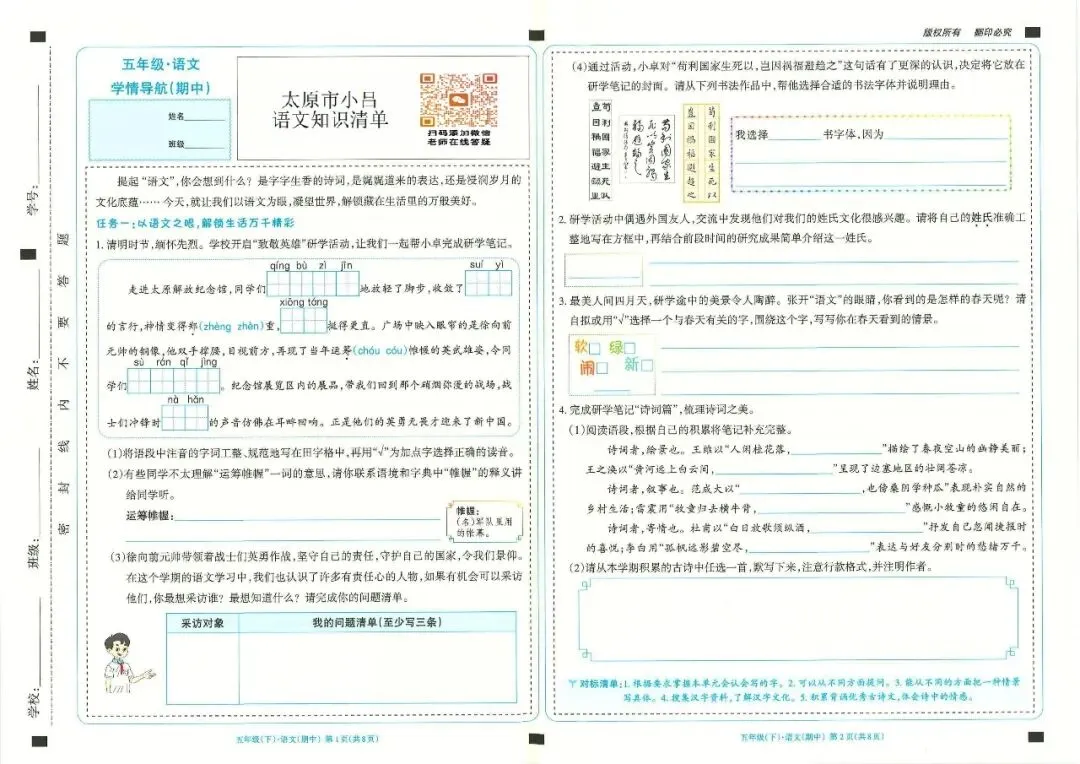 学号：
姓名：
班级：
学校：
密 封 线 内 不 要 答 题
五年级·语文
学情导航(期中)
姓名
班级
太原市小吕
语文知识清单
扫码添加微信
老师在线答疑
提起“语文”，你会想到什么？是字字生香的诗词，是娓娓道来的表达，还是浸润岁月的
文化底蕴…… 今天，就让我们以语文为眼，凝望世界，解锁藏在生活里的万般美好。
任务一：以语文之眼，解锁生活万千精彩
1. 清明时节，缅怀先烈。学校开启“致敬英雄”研学活动，让我们一起帮小卓完成研学笔记。
qíng bù zì jīn
suí yì
走进太原解放纪念馆，同学们 地放轻了脚步，收敛了
xiōng táng
的言行，神情变得郑(zhèng zhèn)重， 挺得更直。广场中映入眼帘的是徐向前
元帅的铜像，他双手撑腰，目视前方，再现了当年运筹(chóu cóu)帷幄的英武雄姿，令同
sù rán qǐ jìng
学们 。纪念馆展览区内的展品，带我们回到那个硝烟弥漫的战场，战
nà hǎn
士们冲锋时 的声音仿佛在耳畔回响。正是他们的英勇无畏才迎来了新中国。
(1)将语段中注音的字词工整、规范地写在田字格中，再用“√”为加点字选择正确的读音。
(2)有些同学不太理解“运筹帷幄”一词的意思，请你联系语境和字典中“帷幄”的释义讲
给同学听。
运筹帷幄：
帷幄：
(名)军队里用
的帐幕。
(3)徐向前元帅带领着战士们英勇作战，坚守自己的责任，守护自己的国家，令我们景仰。
在这个学期的语文学习中，我们也认识了许多有责任心的人物，如果有机会可以采访
他们，你最想采访谁？最想知道什么？请完成你的问题清单。
采访对象 我的问题清单(至少写三条)
五年级(下)·语文(期中) 第1页(共8页)
版权所有 翻印必究
(4)通过活动，小卓对“苟利国家生死以，岂因祸福避趋之”这句话有了更深的认识，决定将它放在
研学笔记的封面。请从下列书法作品中，帮他选择合适的书法字体并说明理由。
苟利国家生死以
岂因祸福避趋之
苟利国家生死以
岂因祸福避趋之
我选择 书字体，因为
2. 研学活动中偶遇外国友人，交流中发现他们对我们的姓氏文化很感兴趣。请将自己的姓氏准确工
整地写在方框中，再结合前段时间的研究成果简单介绍这一姓氏。
3. 最美人间四月天，研学途中的美景令人陶醉。张开“语文”的眼睛，你看到的是怎样的春天呢？请
自拟或用“√”选择一个与春天有关的字，围绕这个字，写写你在春天看到的情景。
软□ 绿□
闹□ 新□
4. 完成研学笔记“诗词篇”，梳理诗词之美。
(1)阅读语段，根据自己的积累将笔记补充完整。
诗词者，绘景也。王维以“人闲桂花落， ”描绘了春夜空山的幽静美丽；
王之涣以“黄河远上白云间， ”呈现了边塞地区的壮阔苍凉。
诗词者，叙事也。范成大以“ ，也傍桑阴学种瓜”表现朴实自然的
乡村生活；雷震用“牧童归去横牛背， ”感慨小牧童的悠闲自在。
诗词者，寄情也。杜甫以“白日放歌须纵酒， ”抒发自己忽闻捷报时
的喜悦；李白用“孤帆远影碧空尽， ”表达与好友分别时的愁绪万千。
(2)请从本学期积累的古诗中任选一首，默写下来，注意行款格式，并注明作者。
对标清单：1. 根据要求掌握本单元会认会写的字。2. 可以从不同方面提问。3. 能从不同的方面把一种情景
写具体。4. 搜集汉字资料，了解汉字文化。5. 积累背诵优秀古诗文，体会诗中的情感。
五年级(下)·语文(期中) 第2页(共8页)